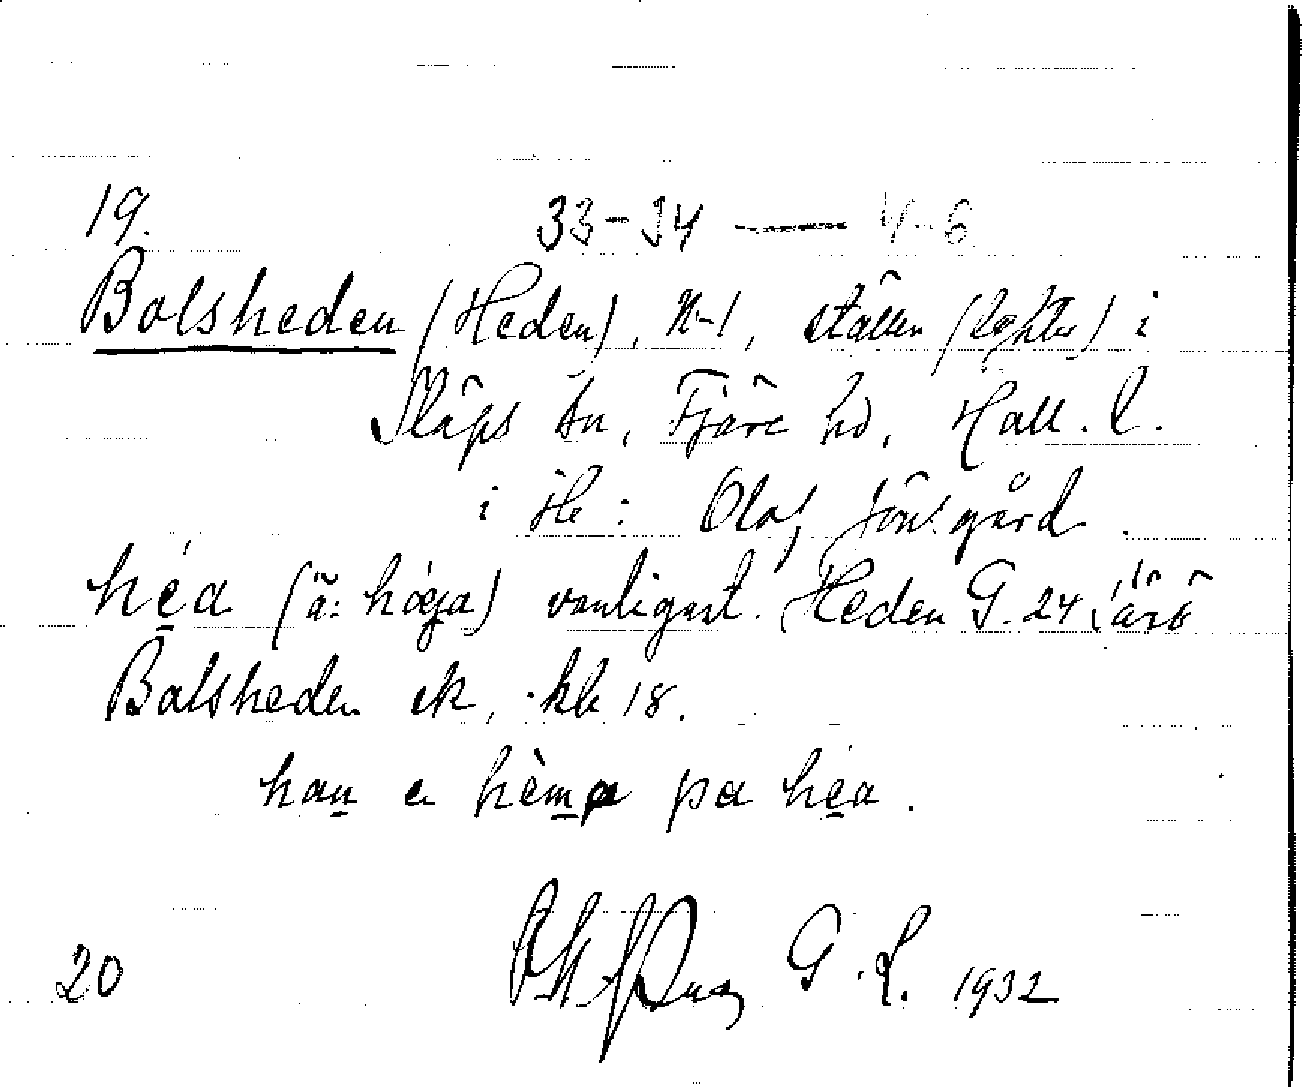 19. 33-34 — 4-6
Bolsheden (Heden), N-1, ställen i
Släps sn, Fjäre hd, Hall. l.
i He: Olof gård.
héa (ä: höga) vanligast. Heden G. 24
Balsheden ek, kb 18.
han e hèma pa héa.
20 G. L. 1932